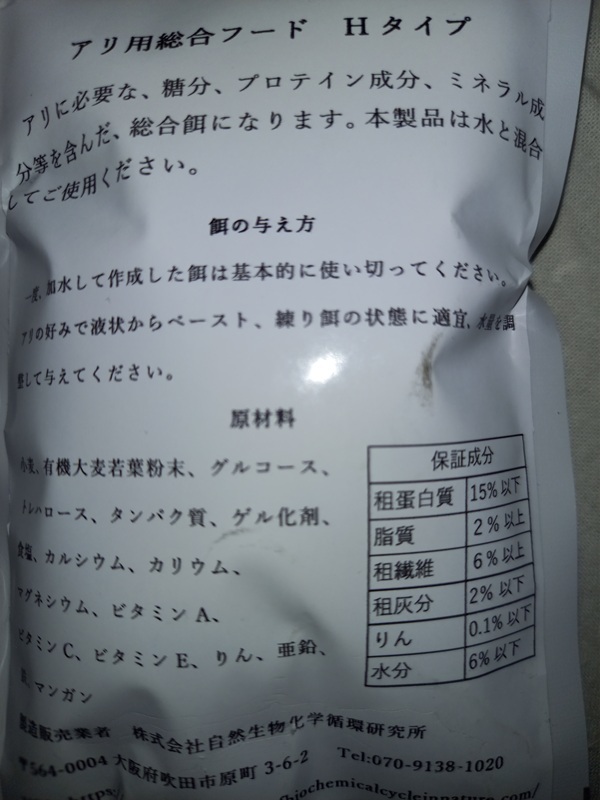 アリ用総合フード Hタイプ
アリに必要な、糖分、プロテイン成分、ミネラル成
分等を含んだ、総合餌になります。本製品は水と混合
してご使用ください。
餌の与え方
一度、加水して作成した餌は基本的に使い切ってください。
アリの好みで液状からペースト、練り餌の状態に適宜、水量を調
整して与えてください。
原材料
小麦、有機大麦若葉粉末、グルコース、
トレハロース、タンパク質、ゲル化剤、
食塩、カルシウム、カリウム、
マグネシウム、ビタミンA、
ビタミンC、ビタミンE、りん、亜鉛、
、マンガン
保証成分
粗蛋白質 15%以下
脂質 2%以上
粗繊維 6%以上
粗灰分 2%以下
りん 0.1%以下
水分 6%以下
製造販売業者 株式会社自然生物化学循環研究所
〒564-0004 大阪府吹田市原町 3-6-2 Tel:070-9138-1020
https:/ biochemicalcycleinnature.com/